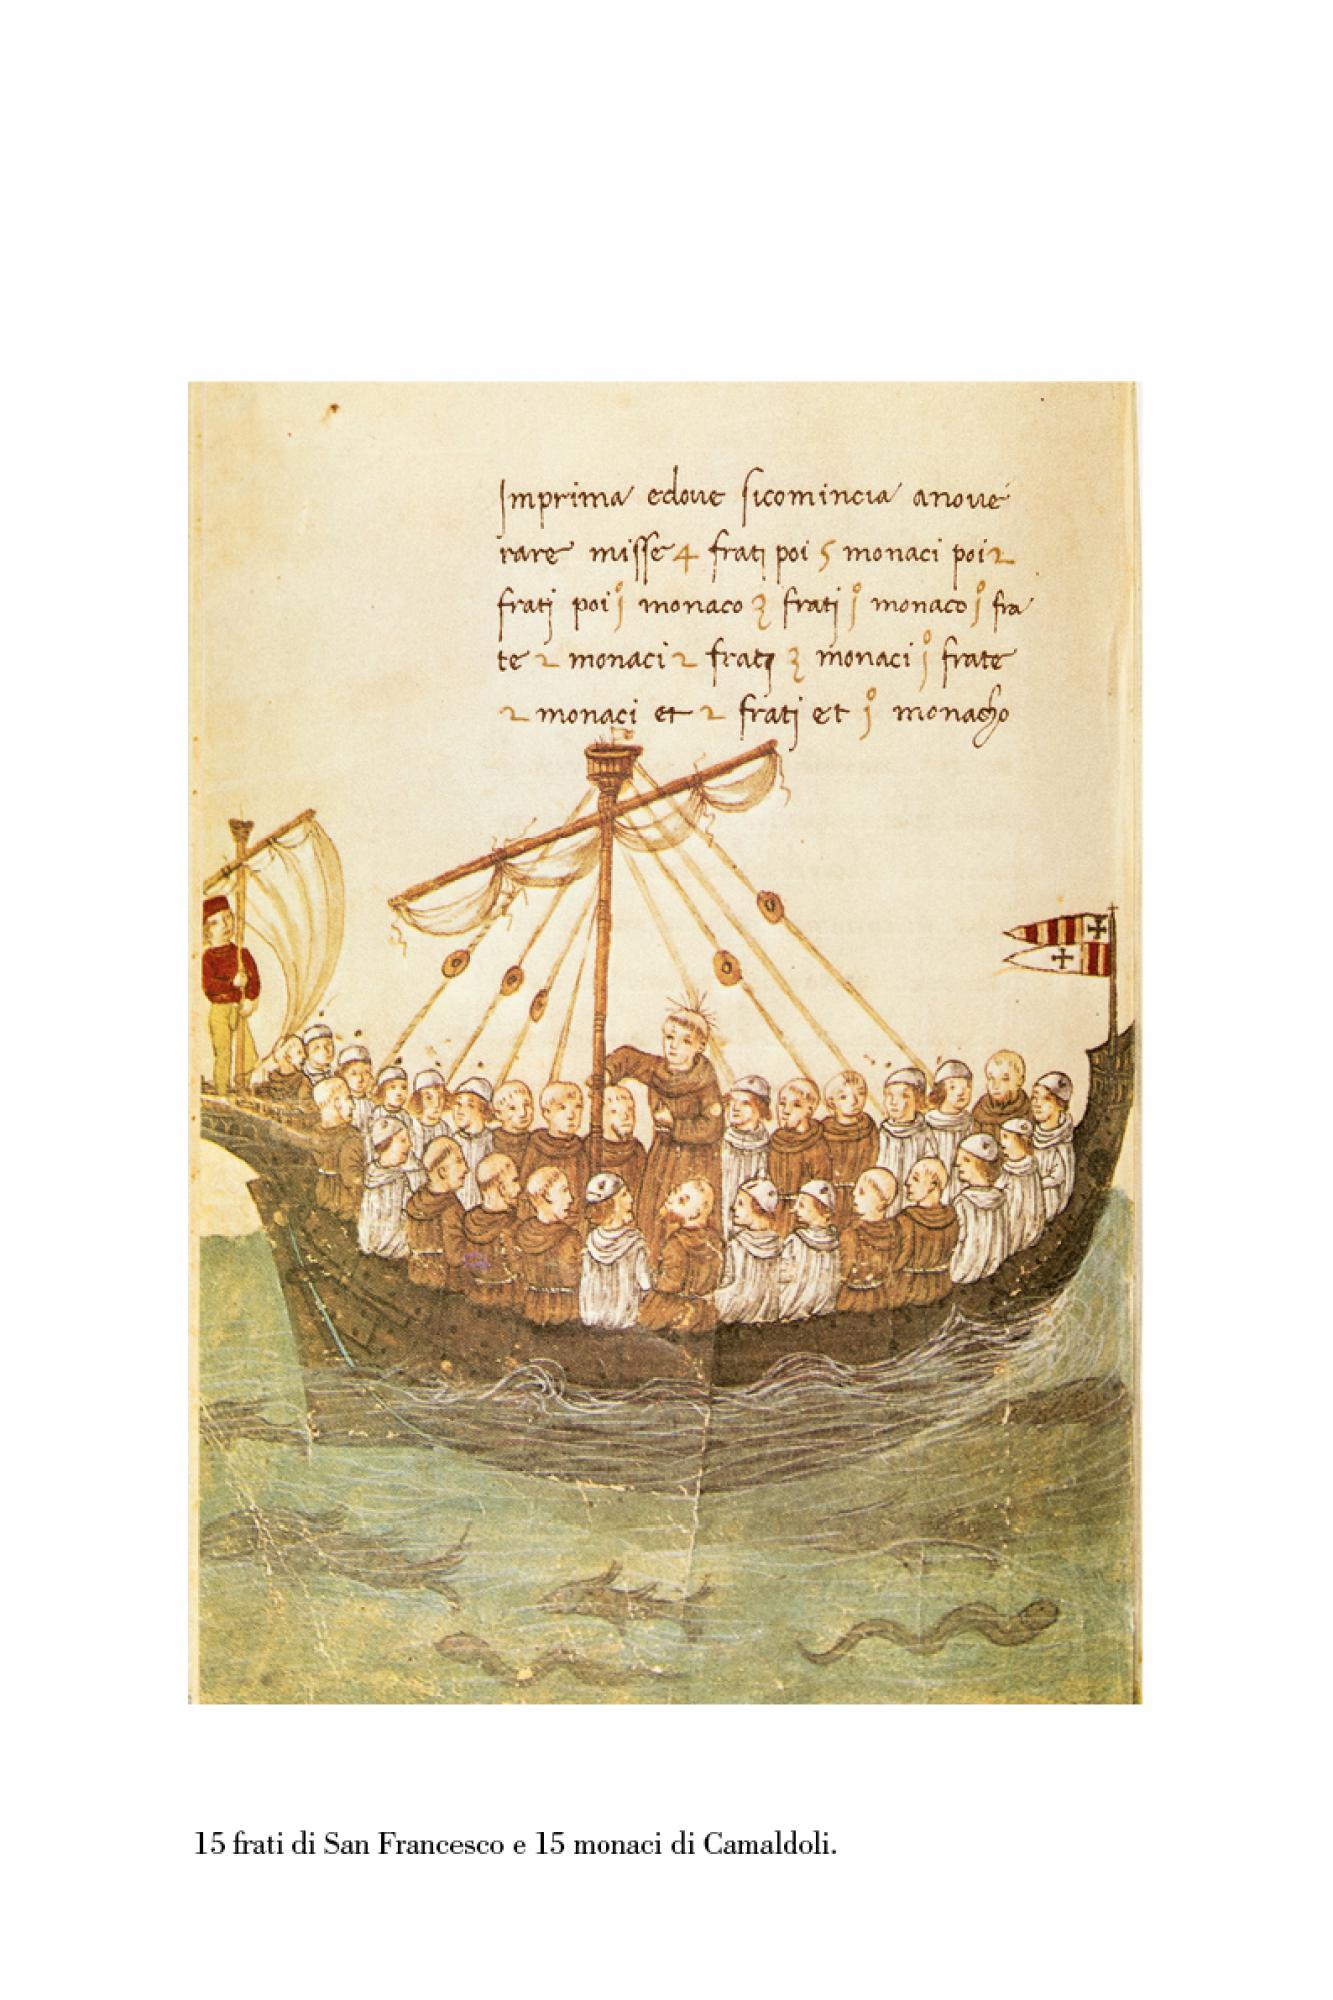 Imprima edoue sicomincia anoue
rare misse 4 frati poi 5 monaci poi 2
fratj poi j monaco 3 fratj j monaco j fra
te 2 monaci 2 fratj 3 monaci j frate
2 monaci et 2 fratj et j monacho
15 frati di San Francesco e 15 monaci di Camaldoli.